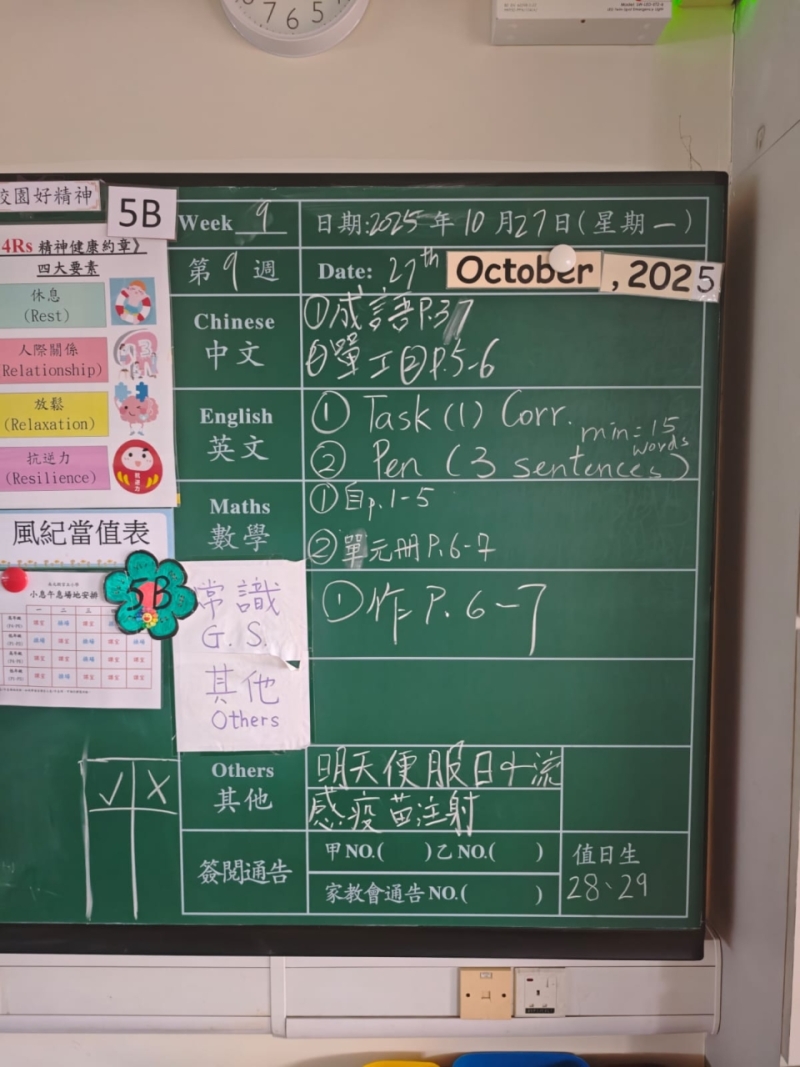 7 6 5
校園好精神
5B
4Rs 精神健康約章》
四大要素
休息
(Rest)
人際關係
(Relationship)
放鬆
(Relaxation)
抗逆力
(Resilience)
風紀當值表
小息午息場地安排
5B
Week 9
日期:2025年10月27日(星期一)
第9週
Date: 27th October, 2025
Chinese
中文
①成語P.37
②單工②P.5-6
English
英文
① Task (1) Corr.
min=15 words
② Pen (3 sentences)
Maths
數學
①自p.1-5
②單元冊P.6-7
常識
G.S.
①作P.6-7
其他
Others
Others
其他
明天便服日+流
感疫苗注射
簽閱通告
甲NO.( )乙NO.( )
家教會通告NO.( )
值日生
28、29
✓ X